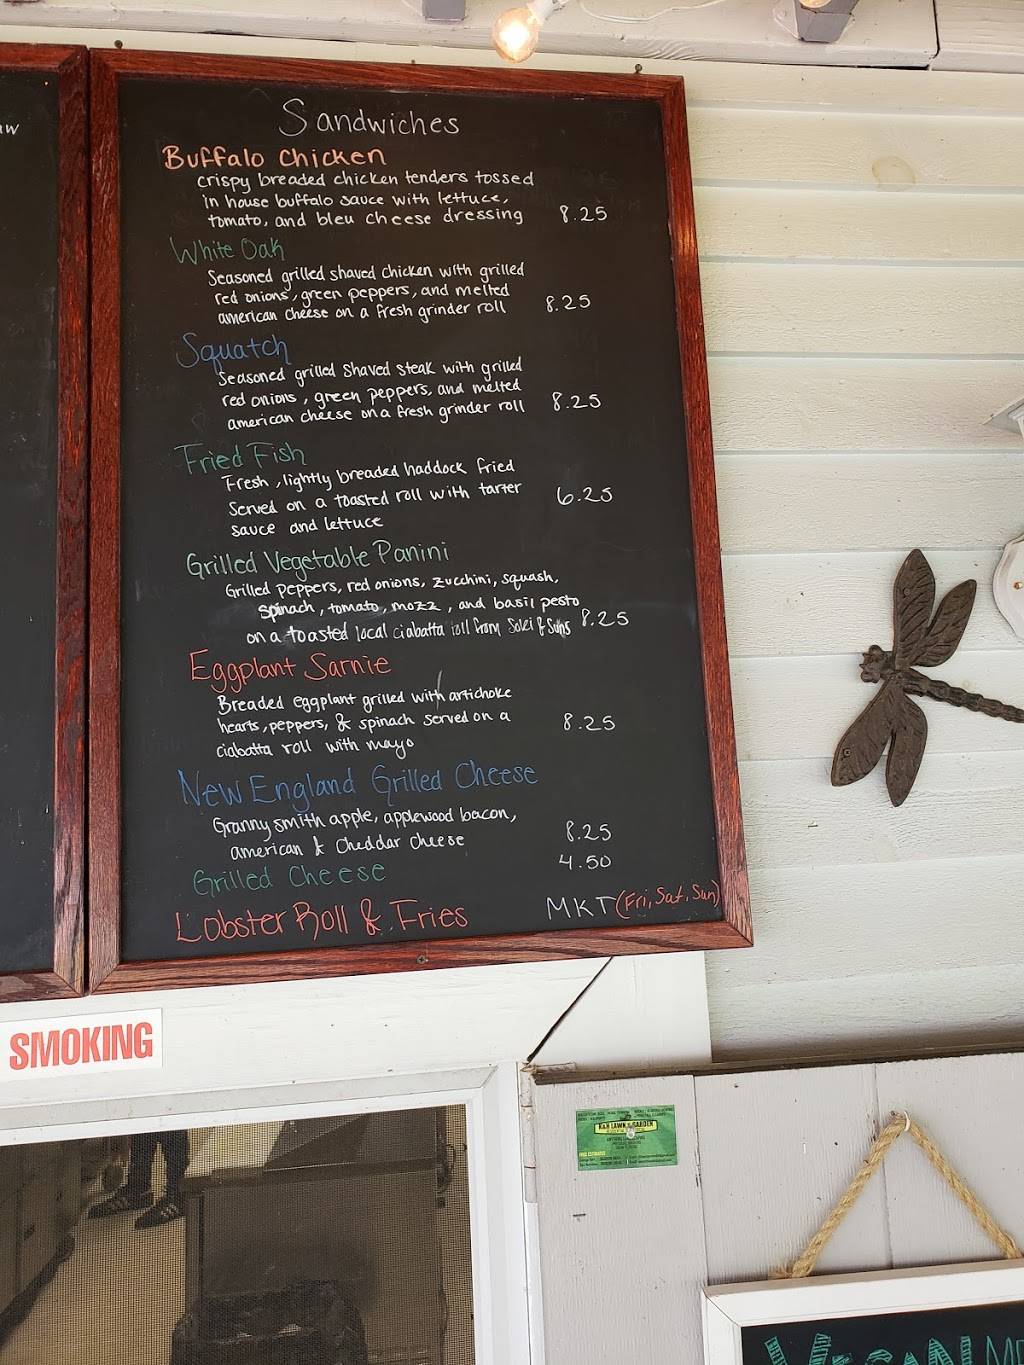 Sandwiches
Buffalo Chicken
crispy breaded chicken tenders tossed
in house buffalo sauce with lettuce,
tomato, and bleu cheese dressing 8.25
White Oak
Seasoned grilled shaved chicken with grilled
red onions, green peppers, and melted
american cheese on a fresh grinder roll 8.25
Squatch
Seasoned grilled shaved steak with grilled
red onions, green peppers, and melted
american cheese on a fresh grinder roll 8.25
Fried Fish
Fresh, lightly breaded haddock fried
Served on a toasted roll with tarter 6.25
sauce and lettuce
Grilled Vegetable Panini
Grilled peppers, red onions, zucchini, squash,
spinach, tomato, mozz, and basil pesto
on a toasted local ciabatta roll from 8.25
Eggplant Sarnie
Breaded eggplant grilled with artichoke
hearts, peppers, & spinach served on a 8.25
ciabatta roll with mayo
New England Grilled Cheese
Granny smith apple, applewood bacon,
american & cheddar cheese 8.25
Grilled Cheese 4.50
Lobster Roll & Fries MKT (Fri, Sat, Sun)
SMOKING
LAWN & GARDEN
FREE ESTIMATES
VEGAN